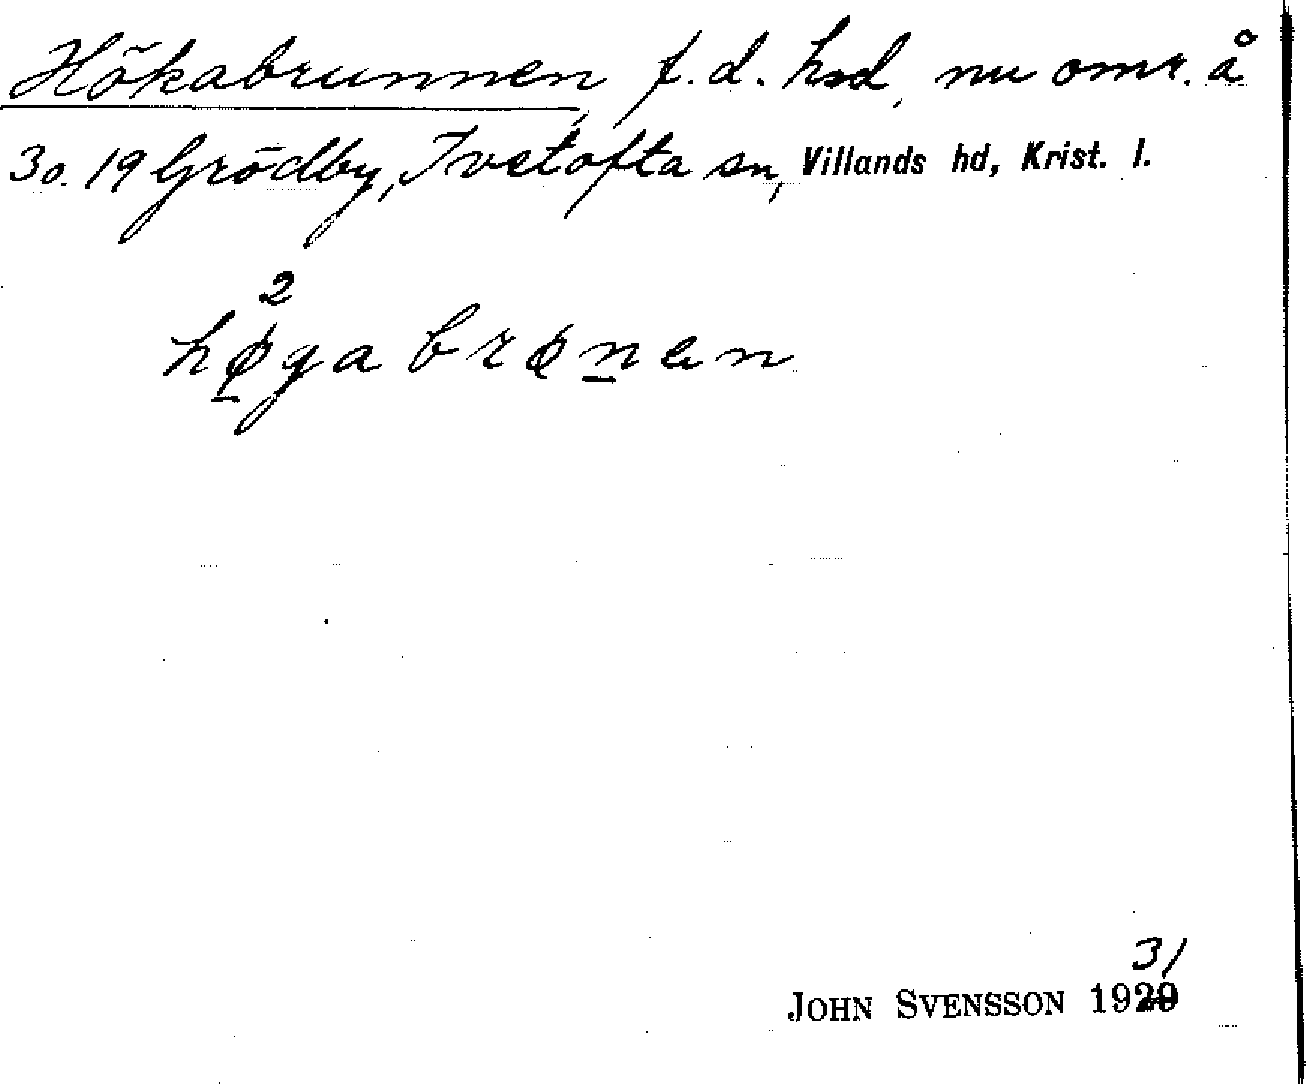 Hökabrunnen f.d. hsd, nu omr. å
30. 19 Grödby, Ivetofta sn, Villands hd, Krist. l.
2
hø̱gabrøṉen
31
JOHN SVENSSON 1929